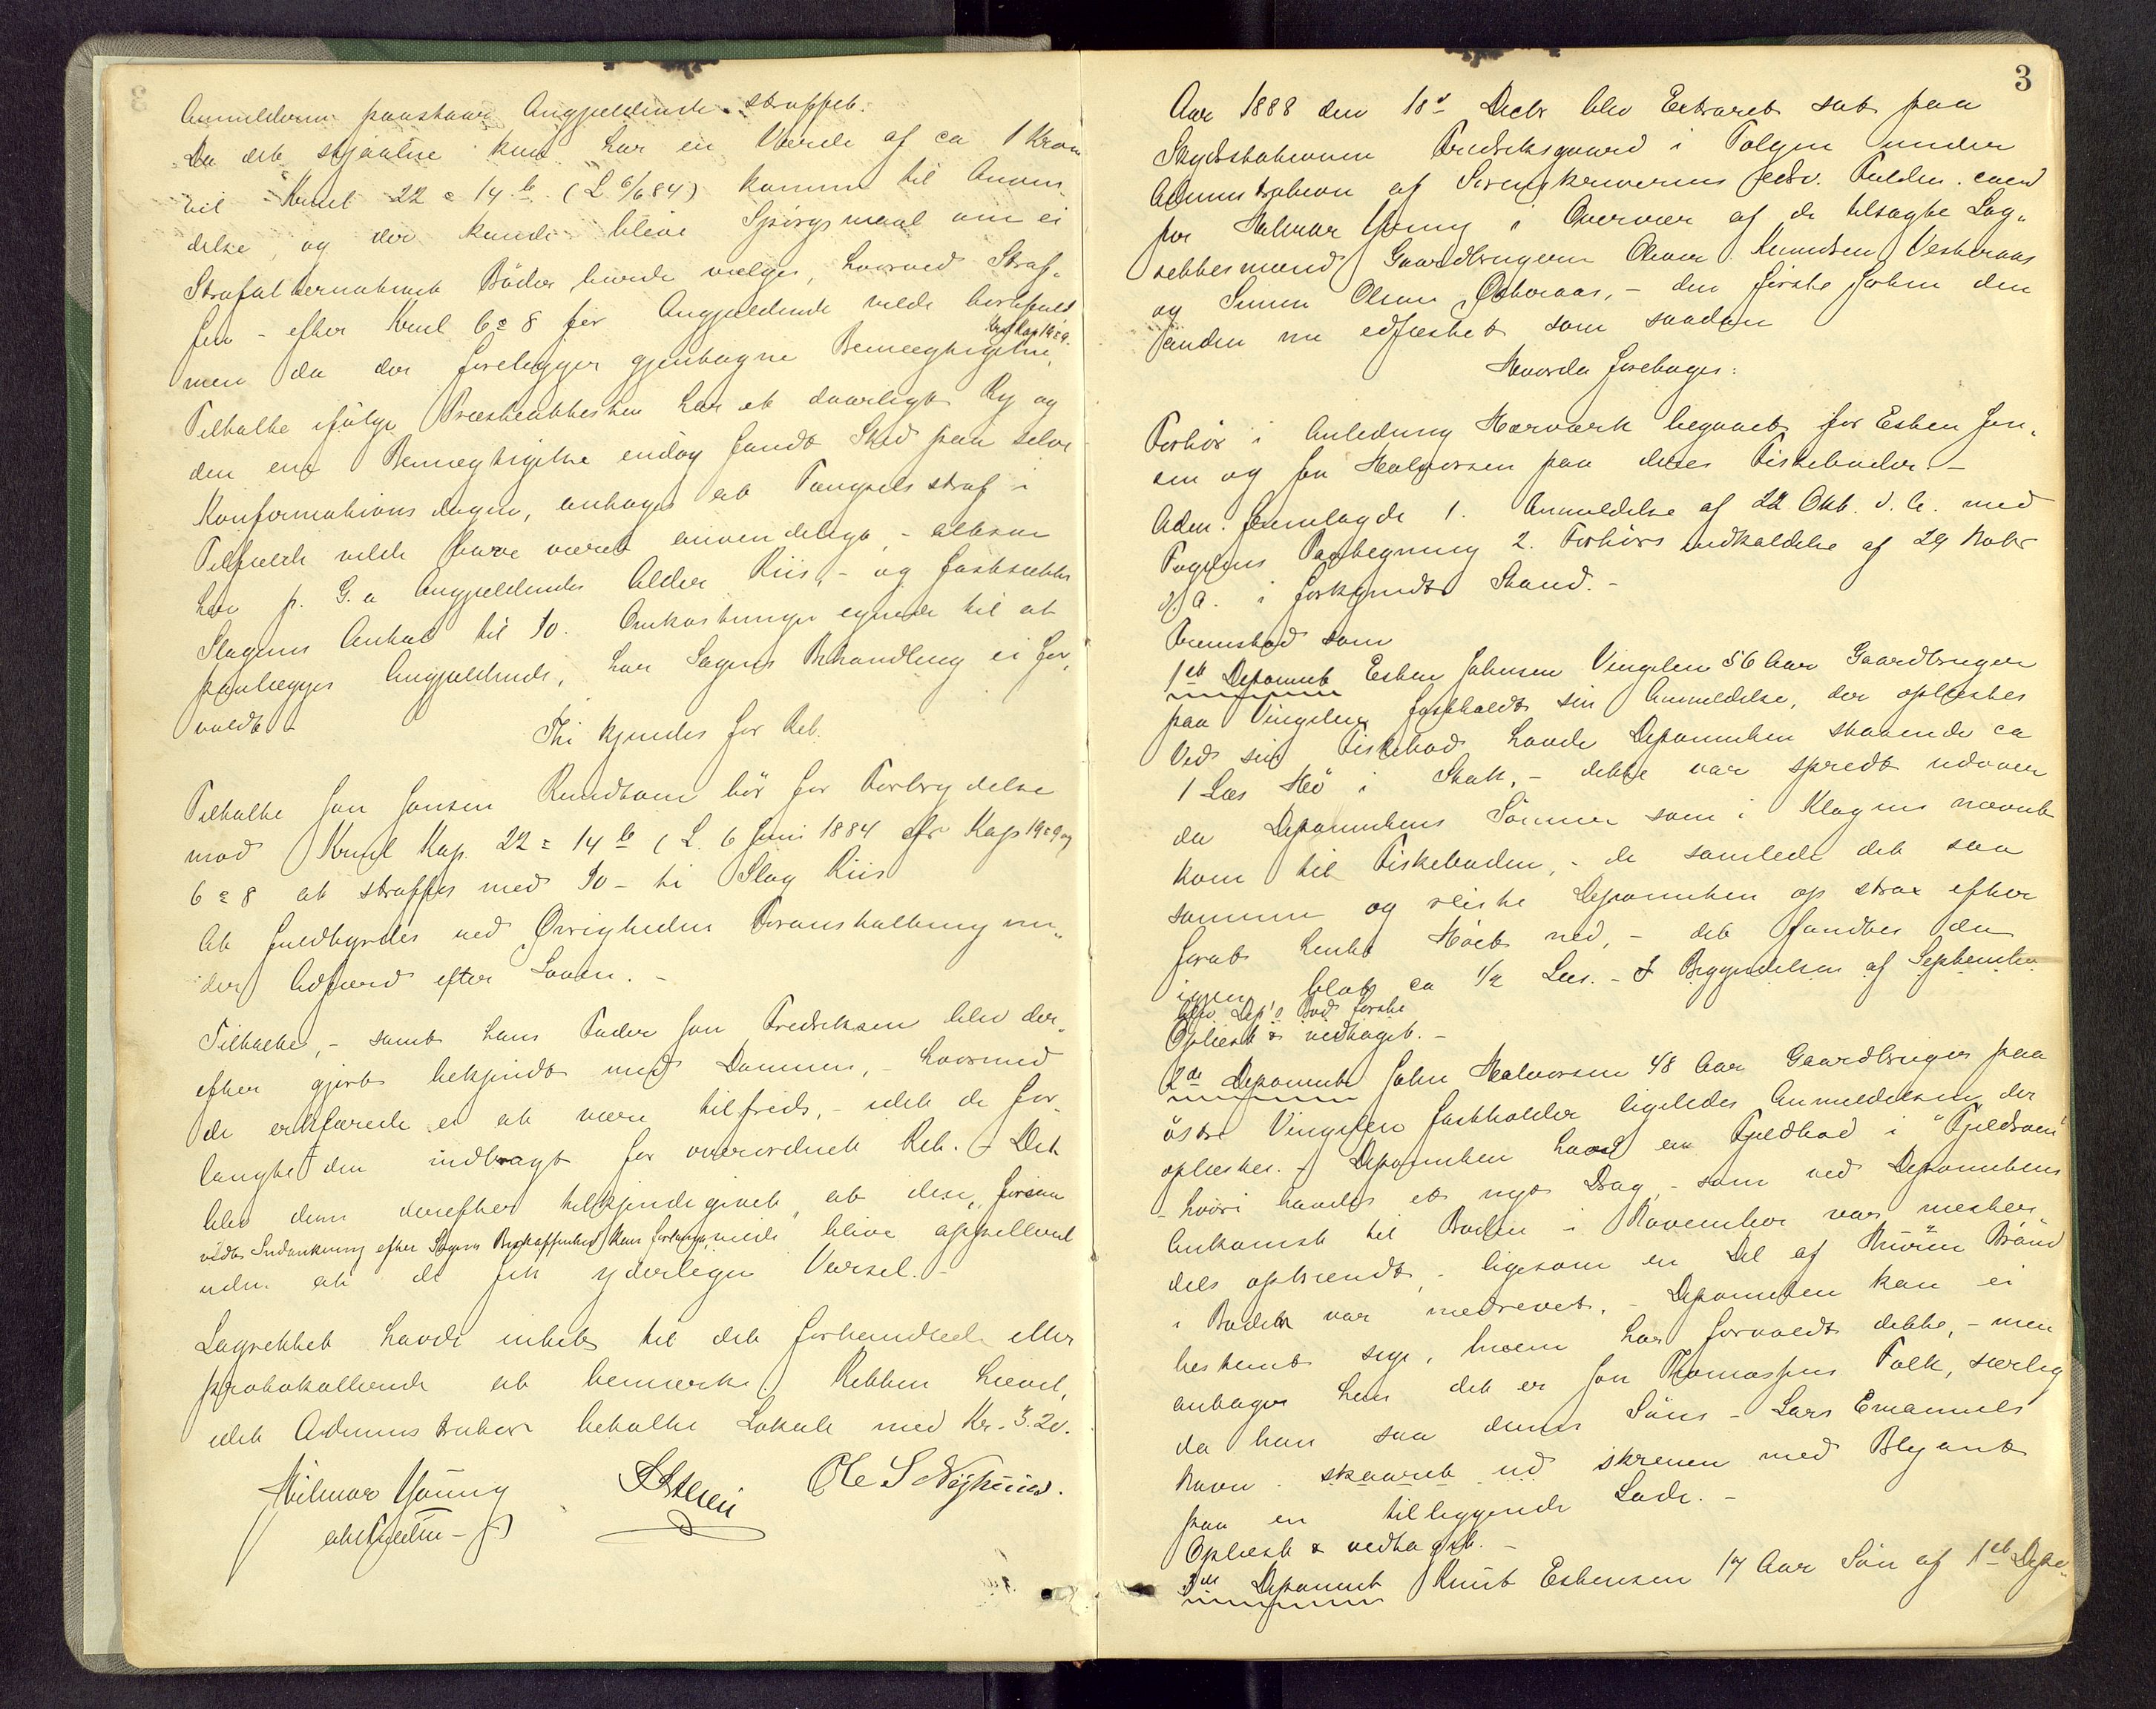 Anmelderen paastaar Angjældende straffet.
Da det stjaalne kun har en Værdi af ca 1 Krone
vil Kriml 22 = 14 b. (L 6/6 84) komme til Anven-
delse, og der kunde blive Spörgsmaal om ei
Strafalternativet Böder burde vælges, hvorved Straf-
fen - efter Kriml 6 = 8 for Angjældende vilde bortfald
men da der foreligger gjentagne Bemægtigelse, krfr Kap 19 = 9.
Tiltalte ifölge Præsteattesten har et daarligt Ry og
den ene Bemægtigelse endog fandt Sted paa selve
Konfirmationsdagen, antages at Fængselsstraf i
Tilfælde vilde have været anvendeligt, - altsaa
her p. G. a Angjældendes Alder Riis, - og fastsættes
Slagenes Antal til 10. Omkostninger egnede til at
paalægges Angjældende, har Sagens Behandling ei for-
voldt. -
Thi kjendes for Ret.
Tiltalte Jon Jonsen Rundtom bör for Forbrydelse
mod Kriml Kap. 22 = 14 b (L. 6 Juni 1884 cfr Kap 19 = 9 og
6 = 8 at straffes med 10 - ti Slag Riis
At fuldbyrdes ved Övrighedens Foranstaltning un-
der Adfærd efter Loven. -
Tiltalte, - samt hans Fader Jon Fredriksen blev der-
efter gjort bekjendt med Dommen, - hvormed
de erklærede ei at være tilfreds, - idet de for-
langte den indbragt for overordnet Ret. - Det
blev dem derefter tilkjendegivet, at den, forsaa
vidt Indankning efter Sagens Beskaffenhed kan forlanges, vilde blive appelleret
uden at de fik yderligere Varsel. -
Lagrettet havde intet til det forhandlede eller
protokollerede at bemærke. Retten hævet,
idet Administrator betalte Lokale med Kr. 3.20.
Hilmar Young
edsv. Fuldm -
Ole S Nÿhuus.
3
Aar 1888 den 18d Decbr blev Extraret sat paa
Skydsstationen Fredriksgaard i Tolgen under
Administration af Sorenskriverens edsv. Fuldm. cand
jur Hilmar Young i Overvær af de tilsagte Lag-
rettesmænd Gaardbrugerne Oluer Knudsen Vesteraas
og Simen Olsen Österaas, - den förste forhen den
anden nu edfæstet som saadan
Hvorda foretages:
Forhör i Anledning Hærværk begaaet for Esben Jon-
sen og Jon Halvorsen paa deres Fiskeboder. -
Adm. fremlagde 1. Anmeldelse af 22 Okt. d. A. med
Fogdens Paategning 2. Forhörs indkaldelse af 29 Novbr
d. A. i forkyndt Stand. -
Fremstod som
1st Deponent Esben Johnsen Vingelen 56 Aar Gaardbruger
paa Vingelen fastholdt sin Anmeldelse, der oplæstes
Ved sin Fiskebod havde Deponenten staaende ca
1 Læs Hö i Stak, - dette var spredt udover
da Deponentens Sönner som i Klagen nævnt
kom til Fiskeboden, - de samlede det saa
sammen og reiste Deponenten op strax efter
forat hente Höet ned, - det fandtes da
igjen blot ca 1/2 Læs. - I Begyndelsen af September
blev Dep's Bod förste
Oplæst & vedtaget. -
2de Deponent John Halvorsen 48 Aar Gaardbruger paa
östre Vingelen fastholder ligeledes Anmeldelsen der
oplæstes. - Deponenten havde en Fjeldbod i "Fjeldroen"
- hvori havdes et nyt Drag, - som ved Deponentens
Ankomst til Boden i November var mesten
dels opbrændt, - ligesom en Del af Murene Brand
i Boden var nedrevet. - Deponenten kan ei
bestemt sige, hvem har forvoldt dette, - men
antager han det er Jon Thomassens Folk, særlig
da han saa dennes Söns - Lars Emanuels
Navn skaaret ud skreven med Blyant
paa en tilliggende Lade. -
Oplæst & vedtaget. -
3die Deponent Knut Esbensen 17 Aar Sön af 1st Depo-